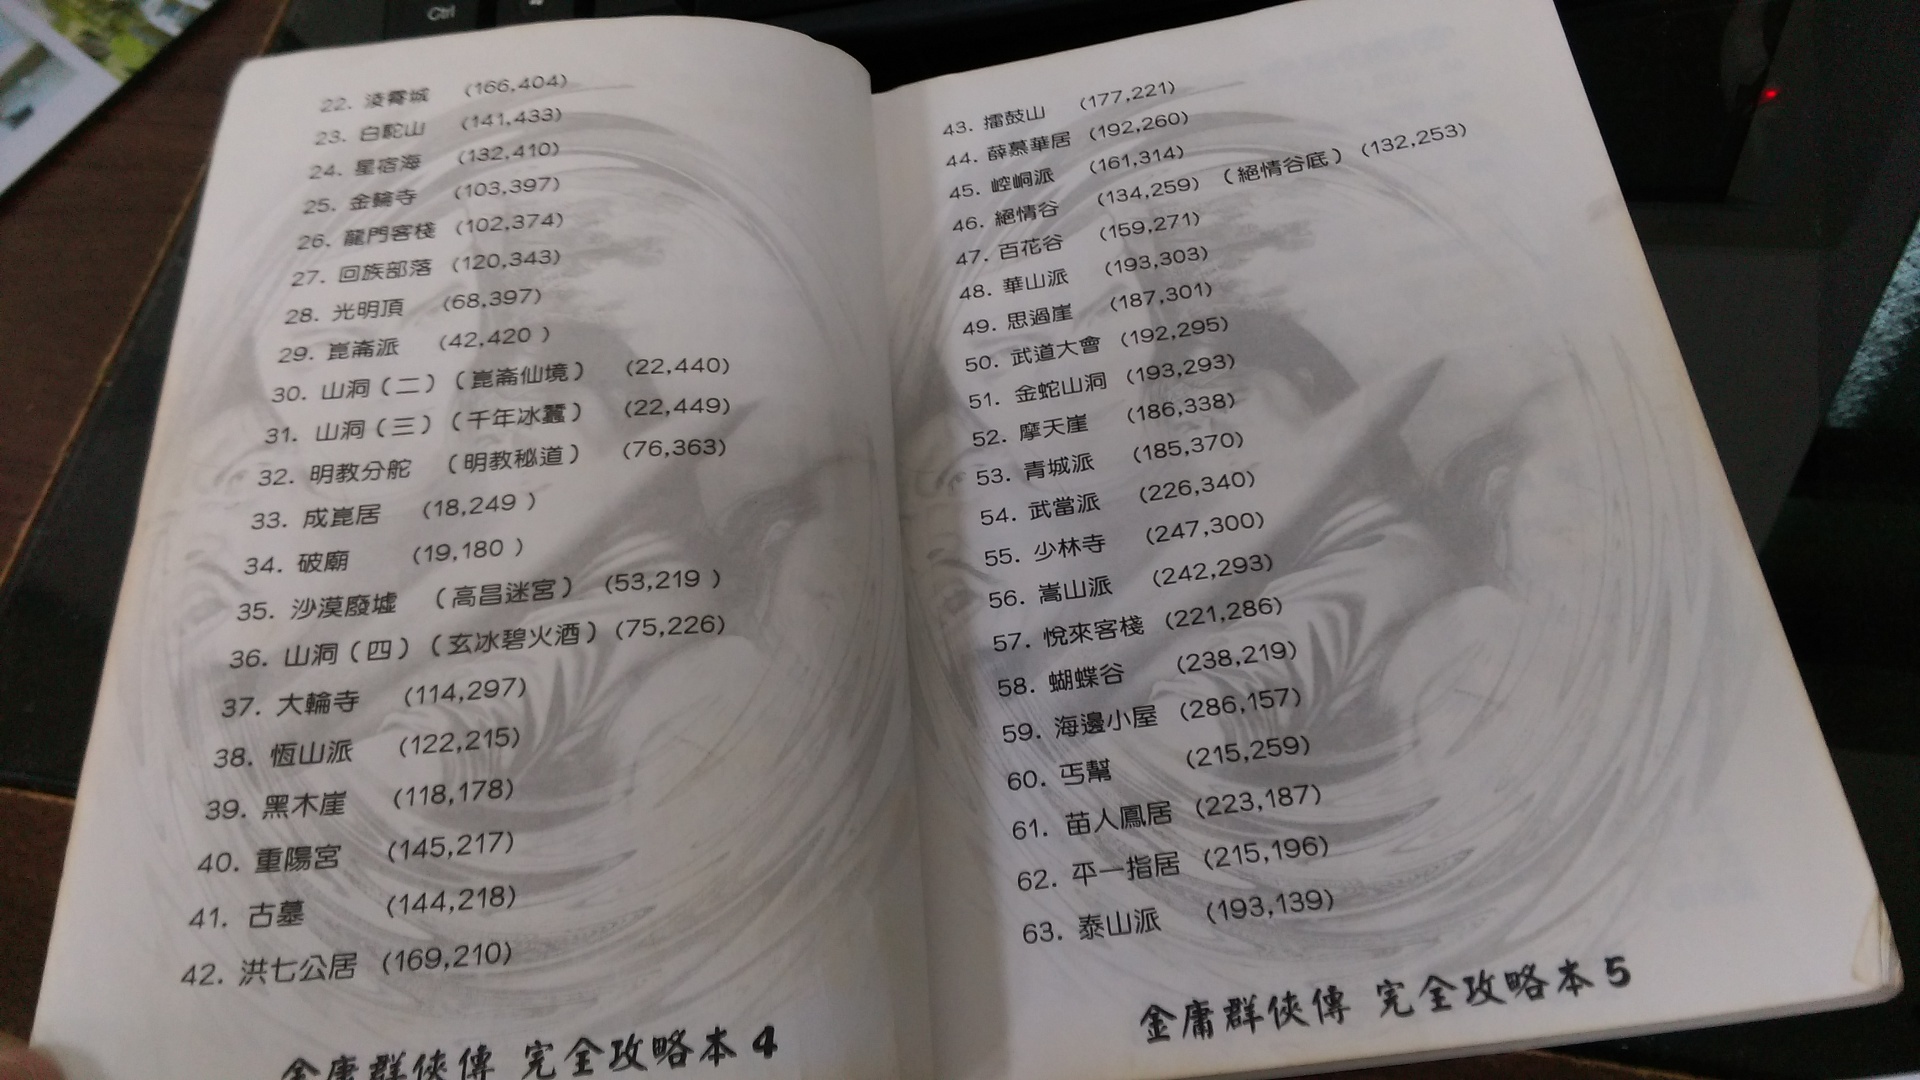 Ctrl
22. 凌霄城 (166,404)
23. 白駝山 (141,433)
24. 星宿海 (132,410)
25. 金輪寺 (103,397)
26. 龍門客棧 (102,374)
27. 回族部落 (120,343)
28. 光明頂 (68,397)
29. 崑崙派 (42,420 )
30. 山洞(二)(崑崙仙境) (22,440)
31. 山洞(三)(千年冰蠶) (22,449)
32. 明教分舵 (明教秘道) (76,363)
33. 成崑居 (18,249 )
34. 破廟 (19,180 )
35. 沙漠廢墟 (高昌迷宮) (53,219 )
36. 山洞(四)(玄冰碧火酒) (75,226)
37. 大輪寺 (114,297)
38. 恆山派 (122,215)
39. 黑木崖 (118,178)
40. 重陽宮 (145,217)
41. 古墓 (144,218)
42. 洪七公居 (169,210)
金庸群俠傳 完全攻略本 4
43. 擂鼓山 (177,221)
44. 薛慕華居 (192,260)
45. 崆峒派 (161,314)
46. 絕情谷 (134,259) (絕情谷底) (132,253)
47. 百花谷 (159,271)
48. 華山派 (193,303)
49. 思過崖 (187,301)
50. 武道大會 (192,295)
51. 金蛇山洞 (193,293)
52. 摩天崖 (186,338)
53. 青城派 (185,370)
54. 武當派 (226,340)
55. 少林寺 (247,300)
56. 嵩山派 (242,293)
57. 悅來客棧 (221,286)
58. 蝴蝶谷 (238,219)
59. 海邊小屋 (286,157)
60. 丐幫 (215,259)
61. 苗人鳳居 (223,187)
62. 平一指居 (215,196)
63. 泰山派 (193,139)
金庸群俠傳 完全攻略本 5